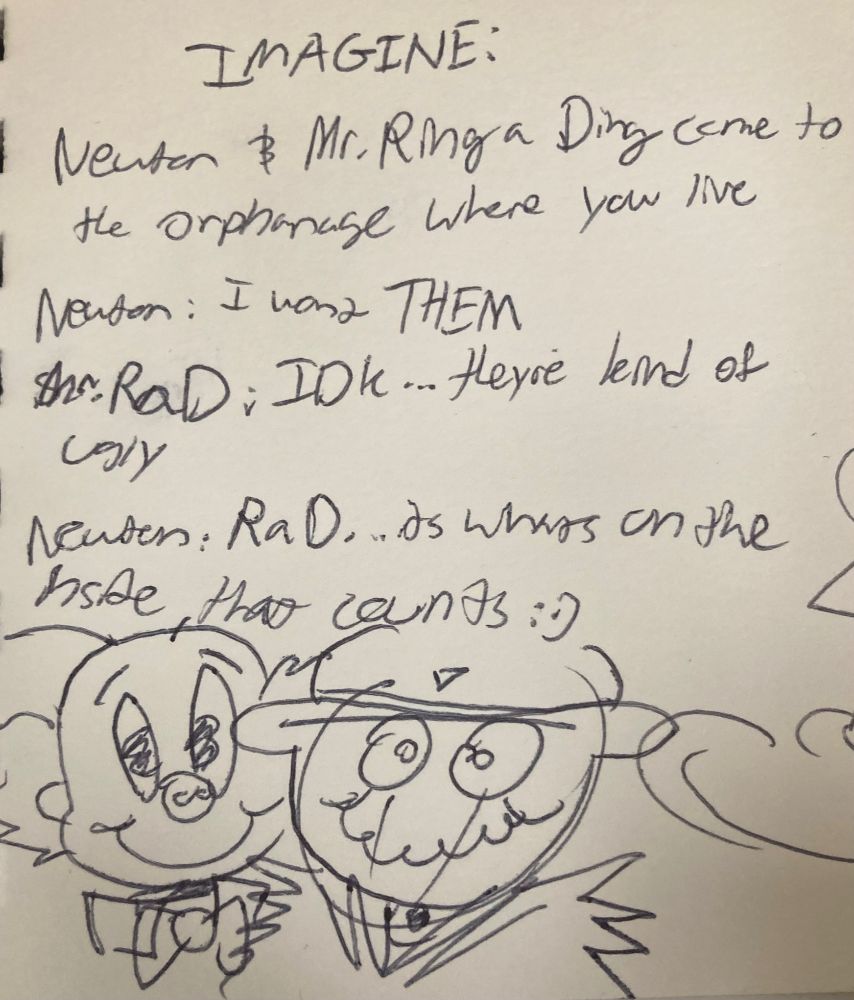 IMAGINE:
Newton & Mr. Ring a Ding come to
the orphanage where you live
Newton: I want THEM
Mr. RaD: IDK... theyre kind of
ugly
Newton: RaD... its whats on the
inside that counts :)